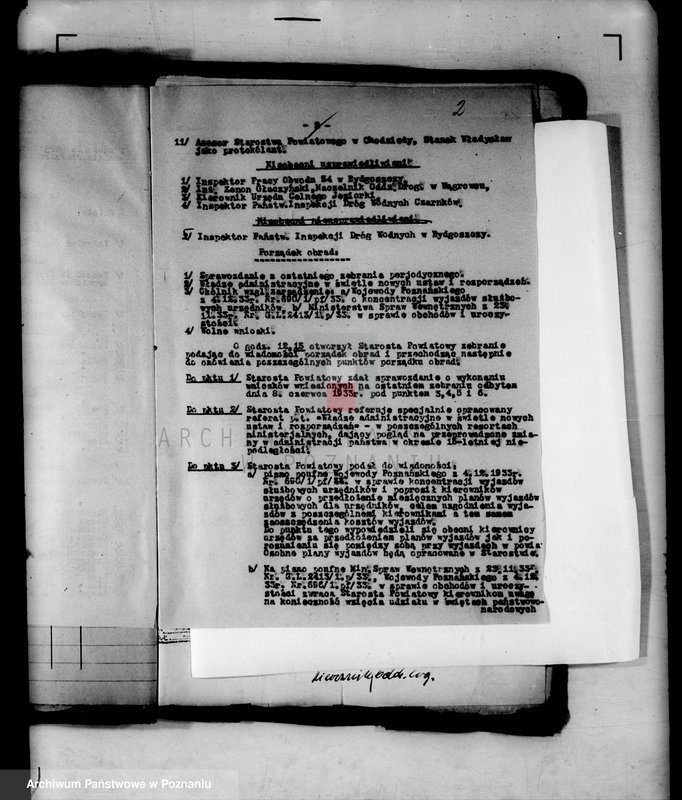 2
- 2 -
11/ Asesor Starostwa Powiatowego w Chodzieży, Stanek Władysław
jako protokólant.
Nieobecni usprawiedliwieni:
1/ Inspektor Pracy Obwodu 54 w Bydgoszczy,
2/ Inż. Zenon Głaczyński, Naczelnik Oddz. Drog. w Wągrowcu,
3/ Kierownik Urzędu Celnego Jeziorki,
4/ Inspektor Państw. Inspekcji Dróg Wodnych Czarnków.
Nieobecni nieusprawiedliwieni:
5/ Inspektor Państw. Inspekcji Dróg Wodnych w Bydgoszczy.
Porządek obrad:
1/ Sprawozdanie z ostatniego zebrania perjodycznego.
2/ Władze administracyjne w świetle nowych ustaw i rozporządzeń.
3/ Okólnik wzgl. zarządzenie: a/ Wojewody Poznańskiego
z 4.12.33r. Nr. 690/1/pf/33. o koncentracji wyjazdów służbo-
wych urzędników, b/ Ministerstwa Spraw Wewnętrznych z 23.
11.33r. Nr. G.L.2413/1.p/33. w sprawie obchodów i uroczy-
stości.
4/ Wolne wnioski.
O godz. 12,15 otworzył Starosta Powiatowy zebranie
podając do wiadomości porządek obrad i przechodząc następnie
do omówienia poszczególnych punktów porządku obrad:
Do pktu 1/ Starosta Powiatowy zdał sprawozdanie o wykonaniu
wniosków wniesionych na ostatniem zebraniu odbytem
dnia 8. czerwca 1933r. pod punktem 3,4,5 i 6.
Do pktu 2/ Starosta Powiatowy referuje specjalnie opracowany
referat p.t. "Władze administracyjne w świetle nowych
ustaw i rozporządzeń" - w poszczególnych resortach
ministerjalnych, dający pogląd na przeprowadzone zmia-
ny w administracji państwa w okresie 15-letniej nie-
podległości.
Do pktu 3/ Starosta Powiatowy podał do wiadomości,
a/ pismo poufne Wojewody Poznańskiego z 4.12.1933r.
Nr. 690/1/pf/33. w sprawie koncentracji wyjazdów
służbowych urzędników i poprosił kierowników
urzędów o przedłożenie miesięcznych planów wyjazdów
służbowych dla urzędników, celem uzgodnienia wyja-
zdów z poszczególnemi kierownikami a tem samem
zaoszczędzenia kosztów wyjazdów.
Do punktu tego wypowiedzieli się obecni kierownicy
urzędów za przedłożeniem planów wyjazdów jak i po-
rozumieniu się pomiędzy sobą przy wyjazdach w powiat
Osobne plany wyjazdów będą opracowane w Starostwie.
b/ Na pismo poufne Min. Spraw Wewnętrznych z 23.11.33r.
Nr. G.L.2413/1.p/33., Wojewody Poznańskiego z 4.12.
33r. Nr. 696/1.pf/33. w sprawie obchodów i uroczy-
stości zwraca Starosta Powiatowy kierownikom uwagę
na konieczność wzięcia udziału w świętach państwowo-
narodowych
ARCHIWUM PAŃSTWOWE
W POZNANIU
Archiwum Państwowe w Poznaniu